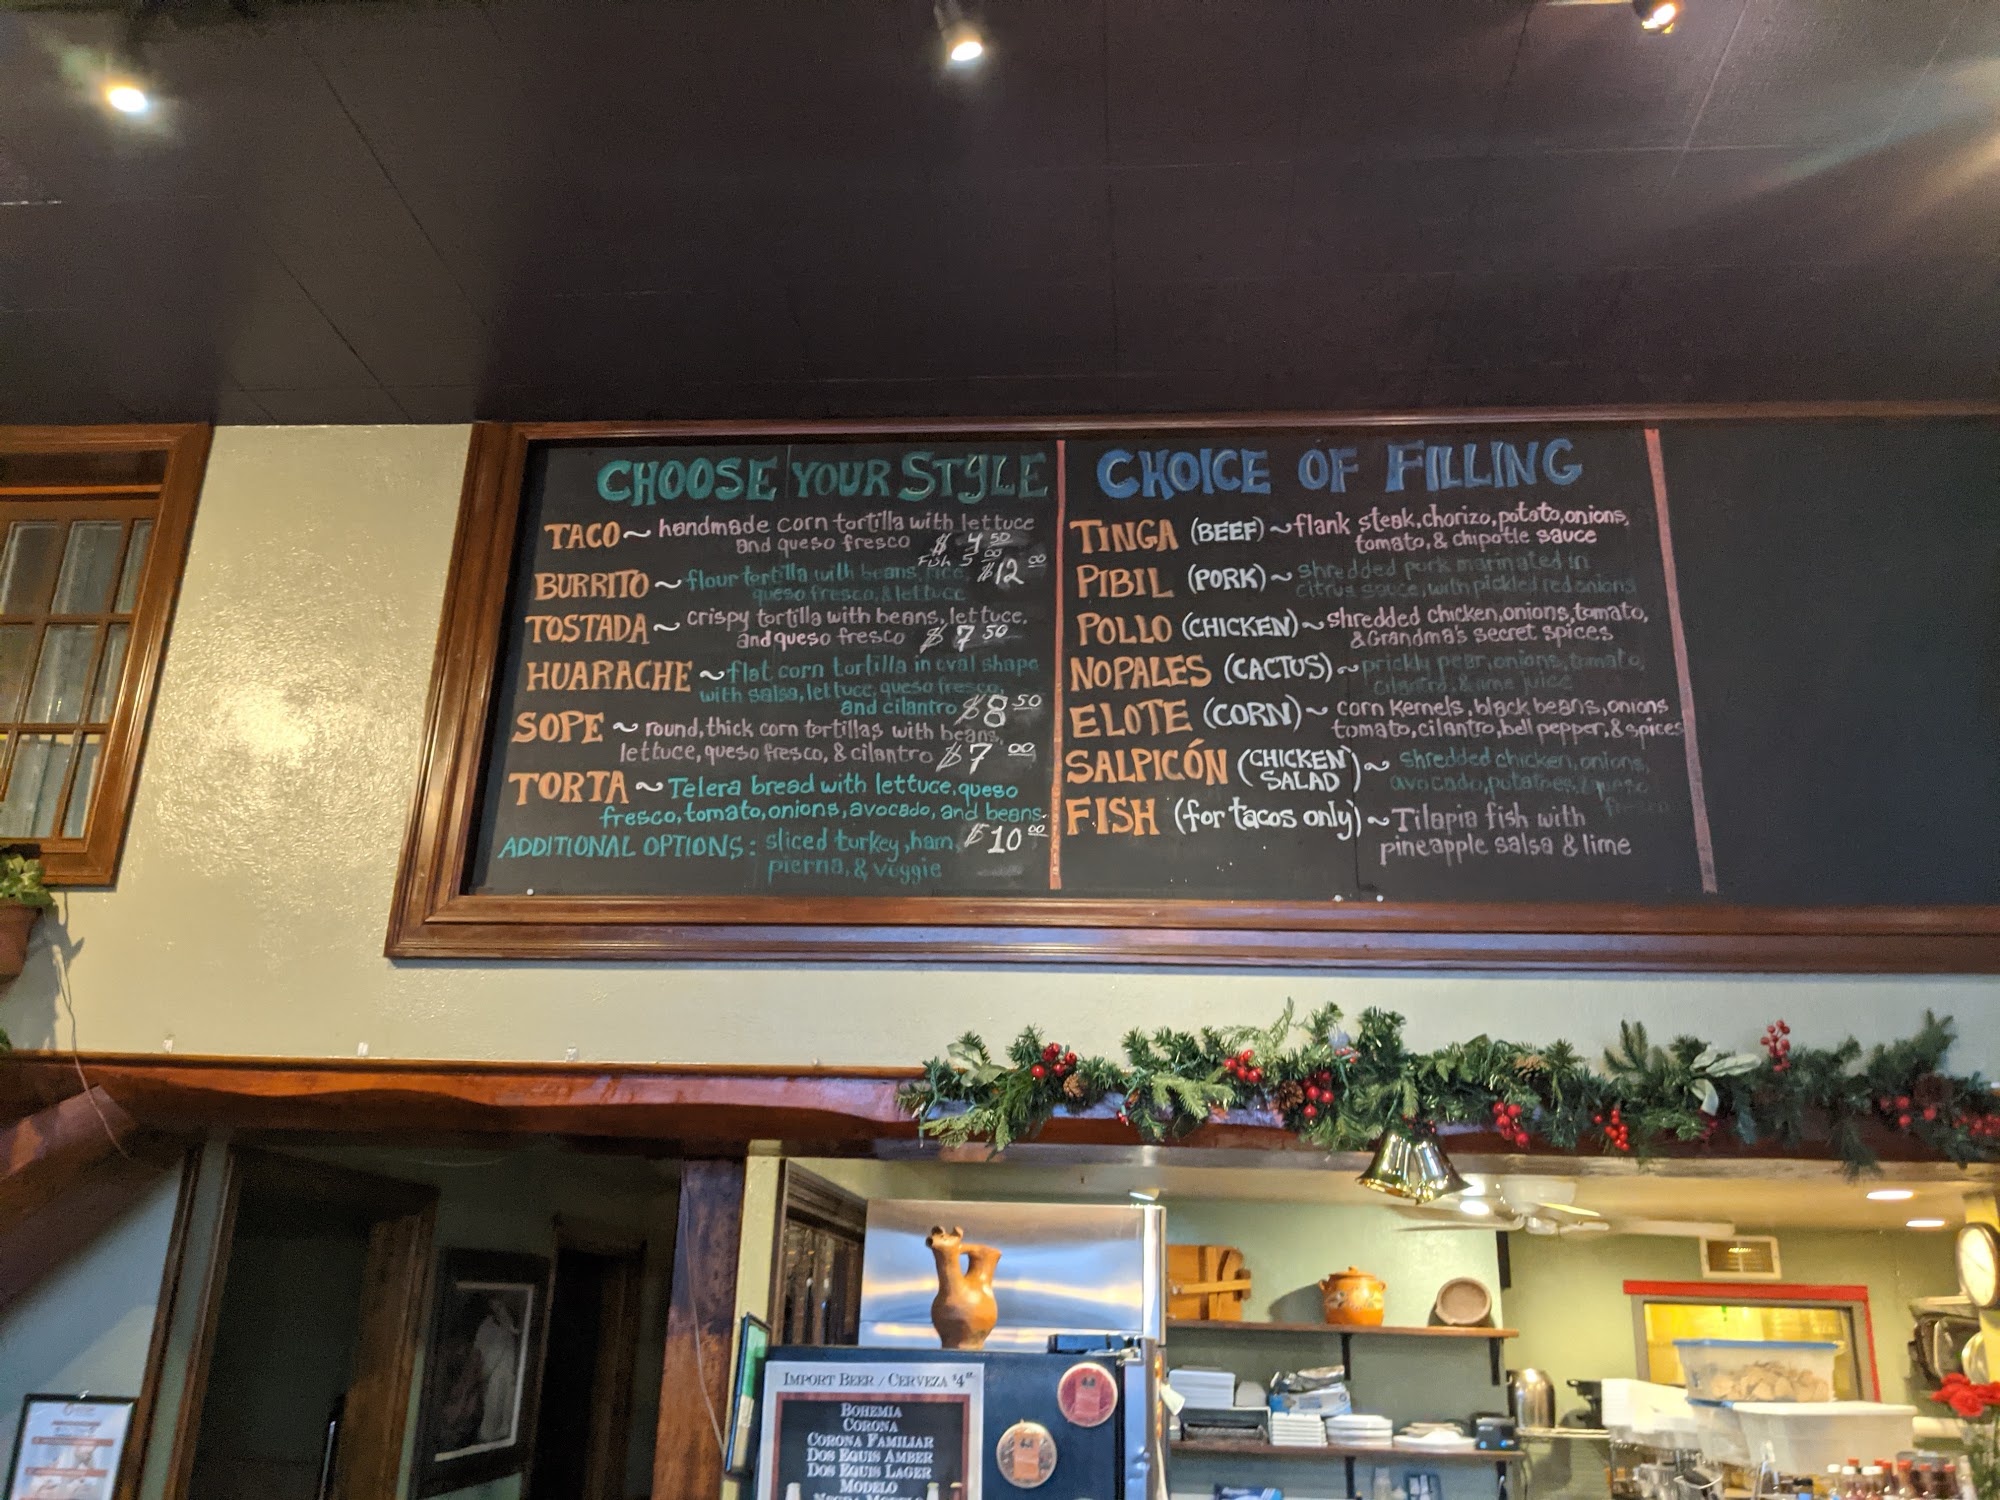 CHOOSE YOUR STYLE
TACO ~ handmade corn tortilla with lettuce
and queso fresco $ 4.50
Fish 5.00
BURRITO ~ flour tortilla with beans, rice, $12.00
queso fresco, & lettuce
TOSTADA ~ crispy tortilla with beans, lettuce,
and queso fresco $ 7.50
HUARACHE ~ flat corn tortilla in oval shape
with salsa, lettuce, queso fresco,
and cilantro $8.50
SOPE ~ round, thick corn tortillas with beans,
lettuce, queso fresco, & cilantro $7.00
TORTA ~ Telera bread with lettuce, queso
fresco, tomato, onions, avocado, and beans.
ADDITIONAL OPTIONS: sliced turkey, ham, $10.00
pierna, & veggie
CHOICE OF FILLING
TINGA (BEEF) ~ flank steak, chorizo, potato, onions,
tomato, & chipotle sauce
PIBIL (PORK) ~ shredded pork marinated in
citrus sauce, with pickled red onions
POLLO (CHICKEN) ~ shredded chicken, onions, tomato,
& Grandma's secret spices
NOPALES (CACTUS) ~ prickly pear, onions, tomato,
cilantro, & lime juice
ELOTE (CORN) ~ corn kernels, black beans, onions
tomato, cilantro, bell pepper, & spices
SALPICÓN (CHICKEN SALAD) ~ shredded chicken, onions,
avocado, potatoes, & queso
fresco
FISH (for tacos only) ~ Tilapia fish with
pineapple salsa & lime
IMPORT BEER / CERVEZA $4
BOHEMIA
CORONA
CORONA FAMILIAR
DOS EQUIS AMBER
DOS EQUIS LAGER
MODELO